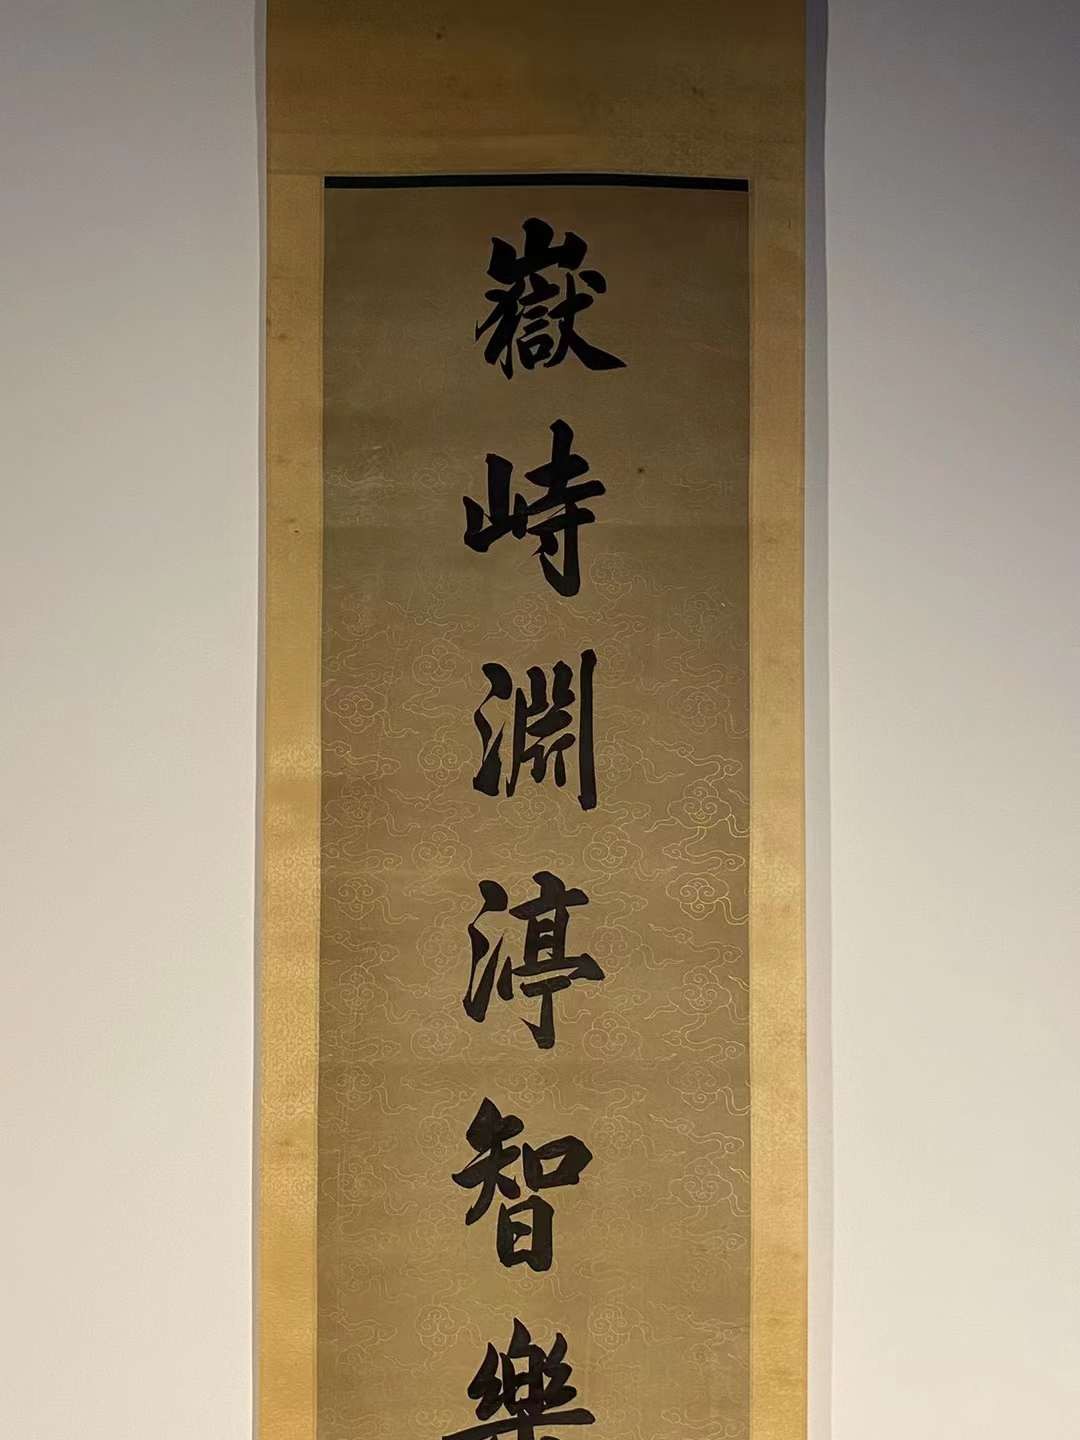 嶽峙淵渟智樂